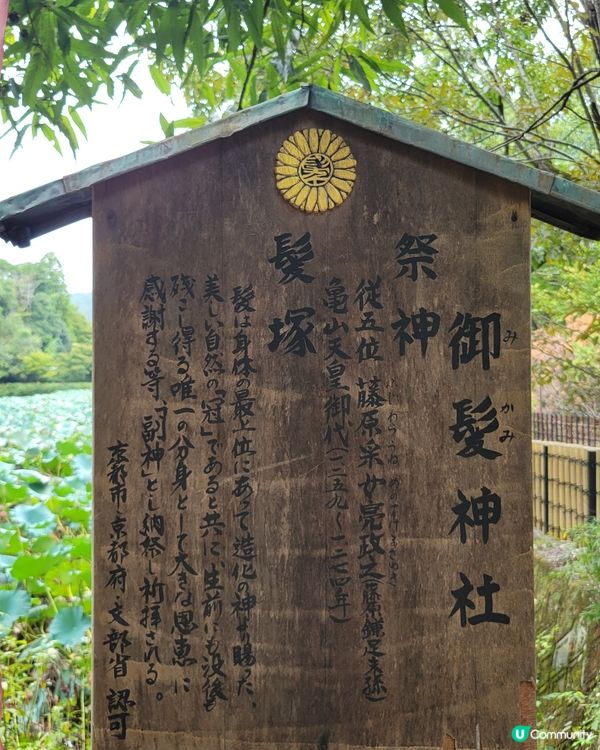 御髪神社
みかみ
祭神
従五位 藤原采女亮政之(藤原鎌足末孫)
亀山天皇御代(一二五九~一二七四年)
髪塚
髪は身体の最上位にあって造化の神より賜った、
美しい自然の「冠」であると共に、生前にも没後も
残こし得る唯一の分身として大きな恩恵に
感謝する等、「副神」とし納祭し祈拝される。
京都市・京都府・文部省 認可
U Community